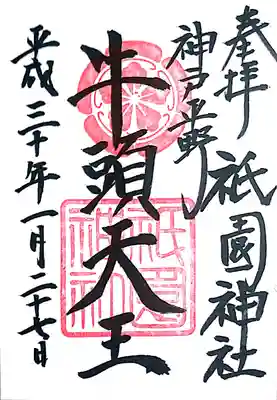 奉拝
祇園神社
神戸平野
牛頭天王
祇園神社
平成三十年一月二十七日